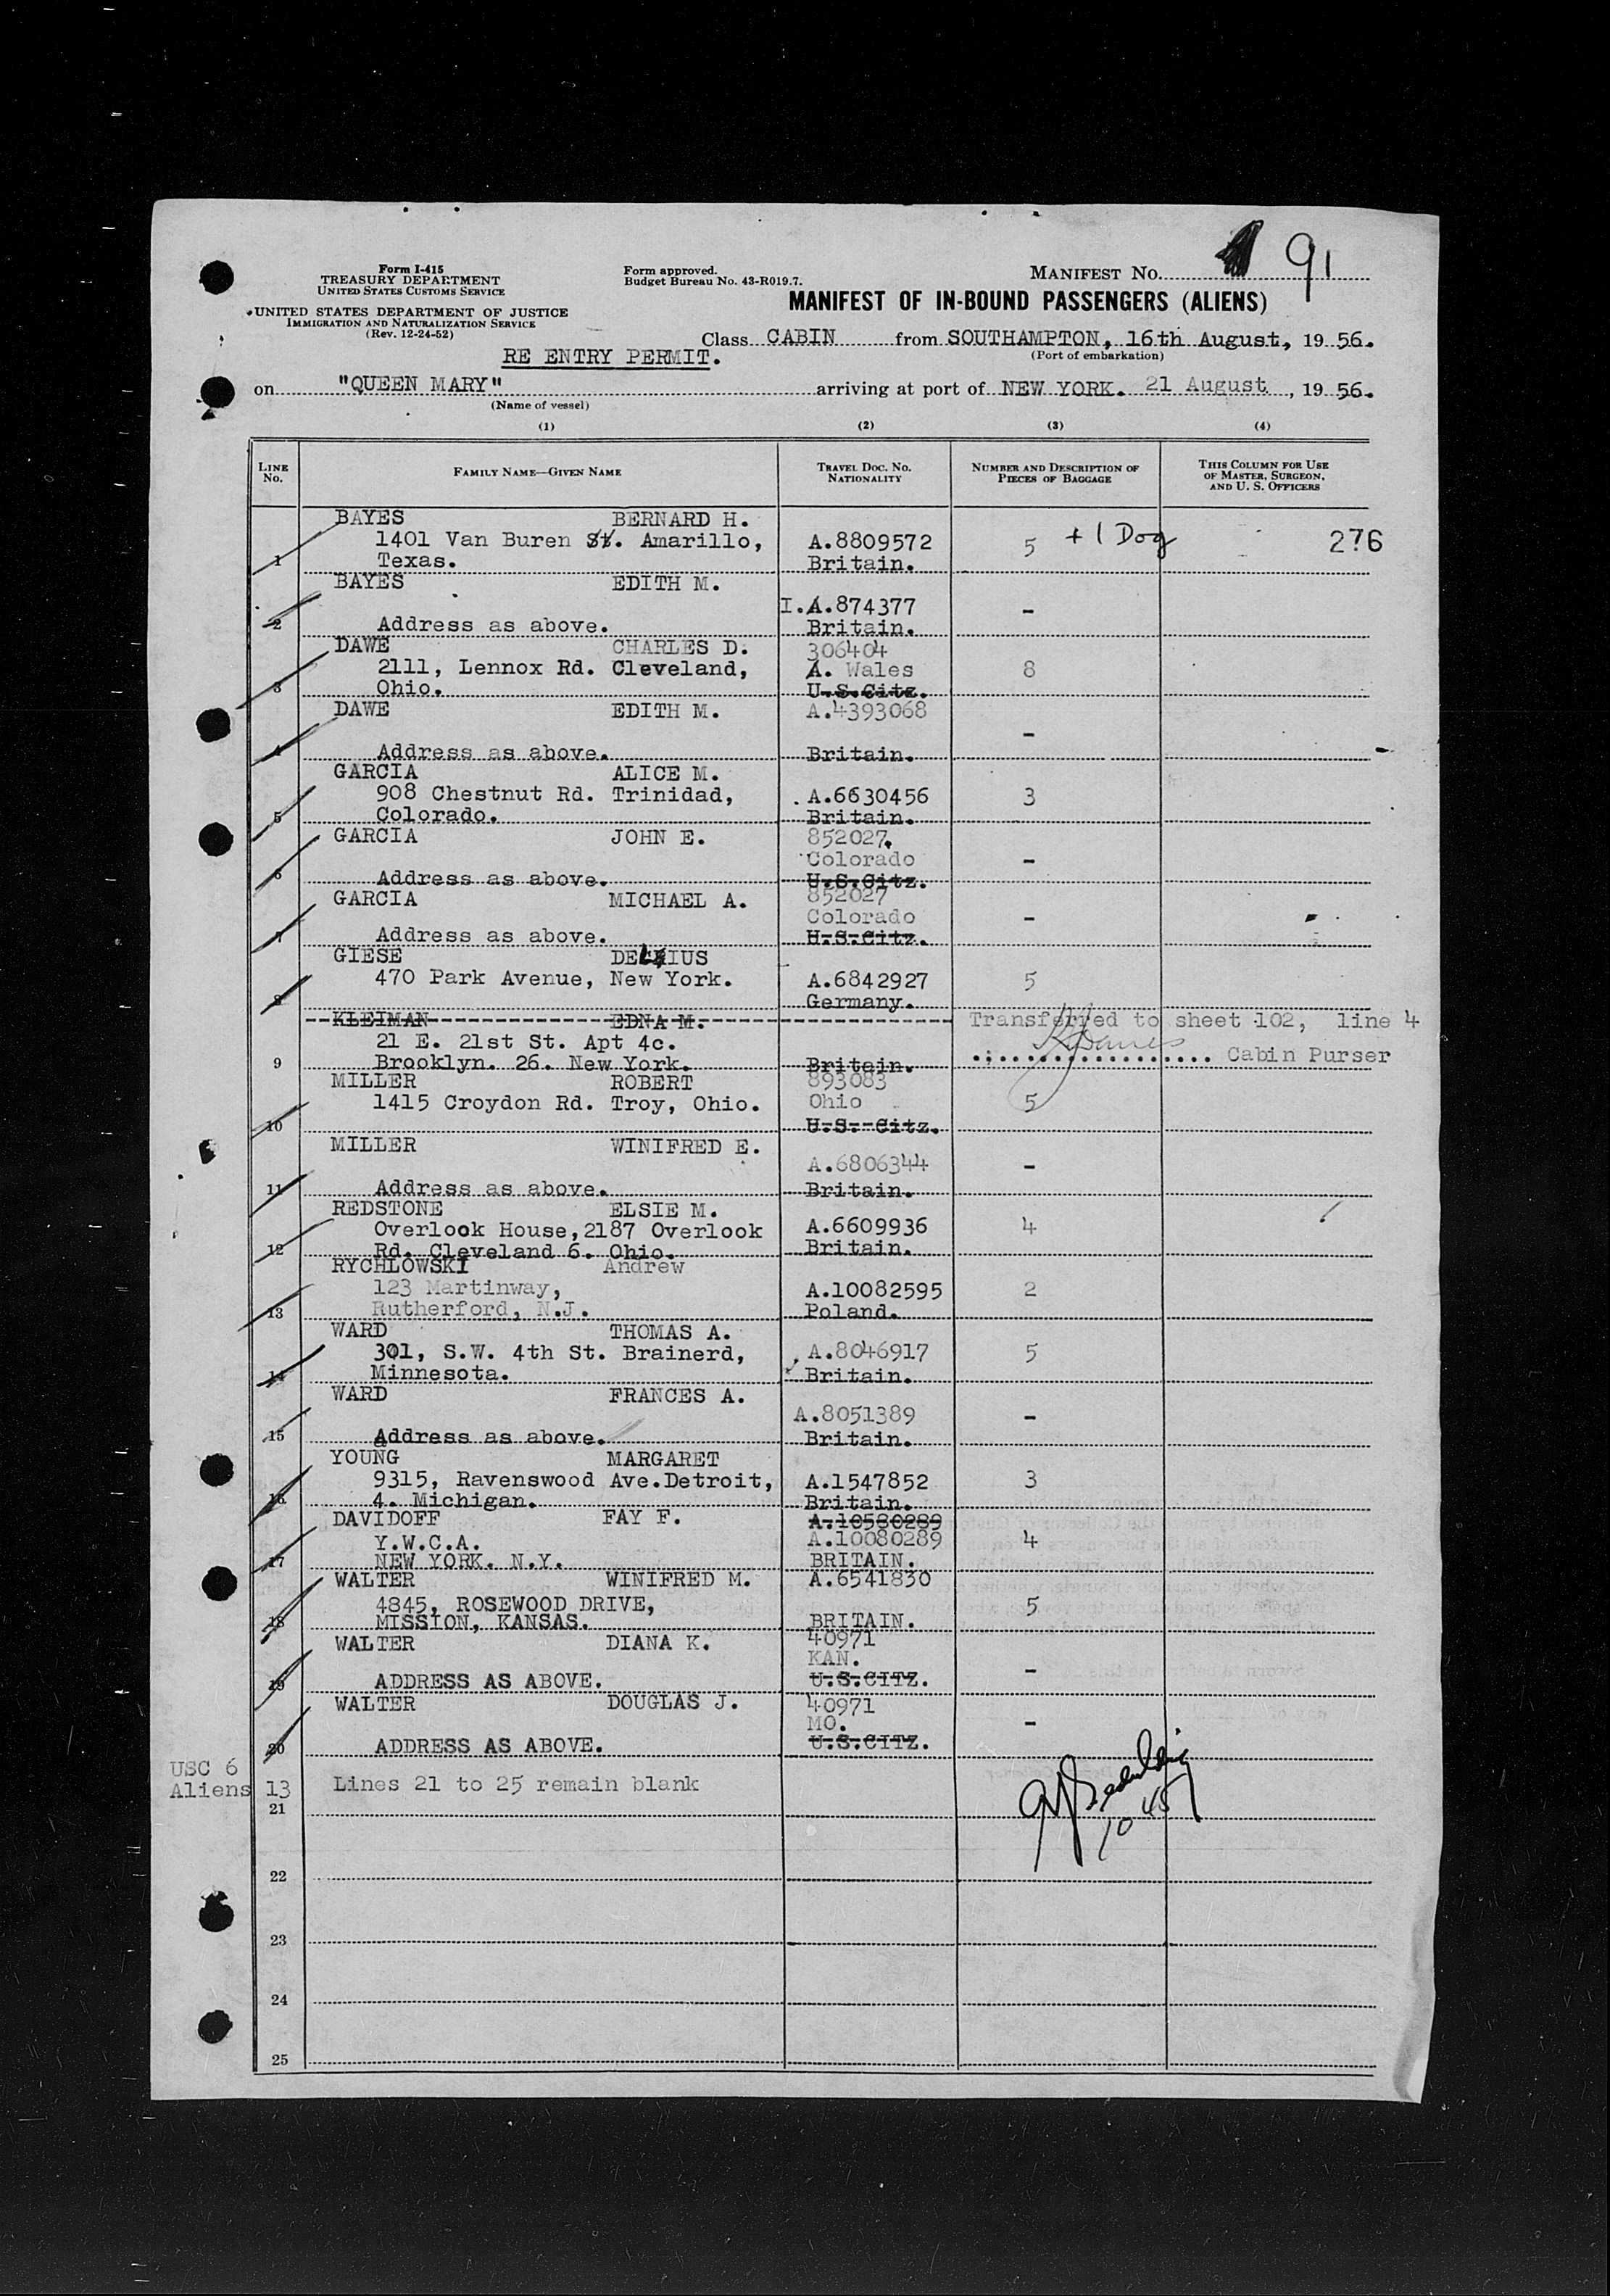 MANIFEST NO. 91
Form I-415
TREASURY DEPARTMENT
UNITED STATES CUSTOMS SERVICE
UNITED STATES DEPARTMENT OF JUSTICE
IMMIGRATION AND NATURALIZATION SERVICE
(Rev. 12-24-52)
Form approved.
Budget Bureau No. 43-R019.7.
MANIFEST OF IN-BOUND PASSENGERS (ALIENS)
Class CABIN from SOUTHAMPTON, 16th August, 1956.
(Port of embarkation)
RE ENTRY PERMIT.
on "QUEEN MARY" arriving at port of NEW YORK. 21 August, 1956.
(Name of vessel)
(1) (2) (3) (4)
LINE No. FAMILY NAME—GIVEN NAME TRAVEL DOC. NO. NATIONALITY NUMBER AND DESCRIPTION OF PIECES OF BAGGAGE THIS COLUMN FOR USE OF MASTER, SURGEON, AND U. S. OFFICERS
BAYES BERNARD H.
1401 Van Buren St. Amarillo, A.8809572 5 + 1 Dog 276
1 Texas. Britain.
BAYES EDITH M.
I.A.874377 -
2 Address as above. Britain.
DAWE CHARLES D. 306404
2111, Lennox Rd. Cleveland, A. Wales 8
3 Ohio. U.S.Citz.
DAWE EDITH M. A.4393068
-
4 Address as above. Britain.
GARCIA ALICE M.
908 Chestnut Rd. Trinidad, A.6630456 3
5 Colorado. Britain.
GARCIA JOHN E. 852027.
Colorado -
6 Address as above. U.S.Citz.
GARCIA MICHAEL A. 852027
Colorado -
7 Address as above. U.S.Citz.
GIESE DELIUS
470 Park Avenue, New York. A.6842927 5
8 Germany.
KLEIMAN EDNA M. Transferred to sheet 102, line 4
21 E. 21st St. Apt 4c.
9 Brooklyn. 26. New York. Britain. Cabin Purser
MILLER ROBERT 893083
1415 Croydon Rd. Troy, Ohio. Ohio 5
10 U.S. Citz.
MILLER WINIFRED E.
A.6806344 -
11 Address as above. Britain.
REDSTONE ELSIE M.
Overlook House,2187 Overlook A.6609936 4
12 Rd. Cleveland 6. Ohio. Britain.
RYCHLOWSKI Andrew
123 Martinway, A.10082595 2
13 Rutherford, N.J. Poland.
WARD THOMAS A.
301, S.W. 4th St. Brainerd, A.8046917 5
14 Minnesota. Britain.
WARD FRANCES A.
A.8051389 -
15 Address as above. Britain.
YOUNG MARGARET
9315, Ravenswood Ave.Detroit, A.1547852 3
16 4. Michigan. Britain.
DAVIDOFF FAY F. A.10580289
Y.W.C.A. A.10080289 4
17 NEW YORK. N.Y. BRITAIN.
WALTER WINIFRED M. A.6541830
4845, ROSEWOOD DRIVE, 5
18 MISSION, KANSAS. BRITAIN.
WALTER DIANA K. 40971
KAN. -
19 ADDRESS AS ABOVE. U.S.CITZ.
WALTER DOUGLAS J. 40971
MO. -
20 ADDRESS AS ABOVE. U.S.CITZ.
USC 6
Aliens 13 Lines 21 to 25 remain blank
21
10 45
22
23
24
25